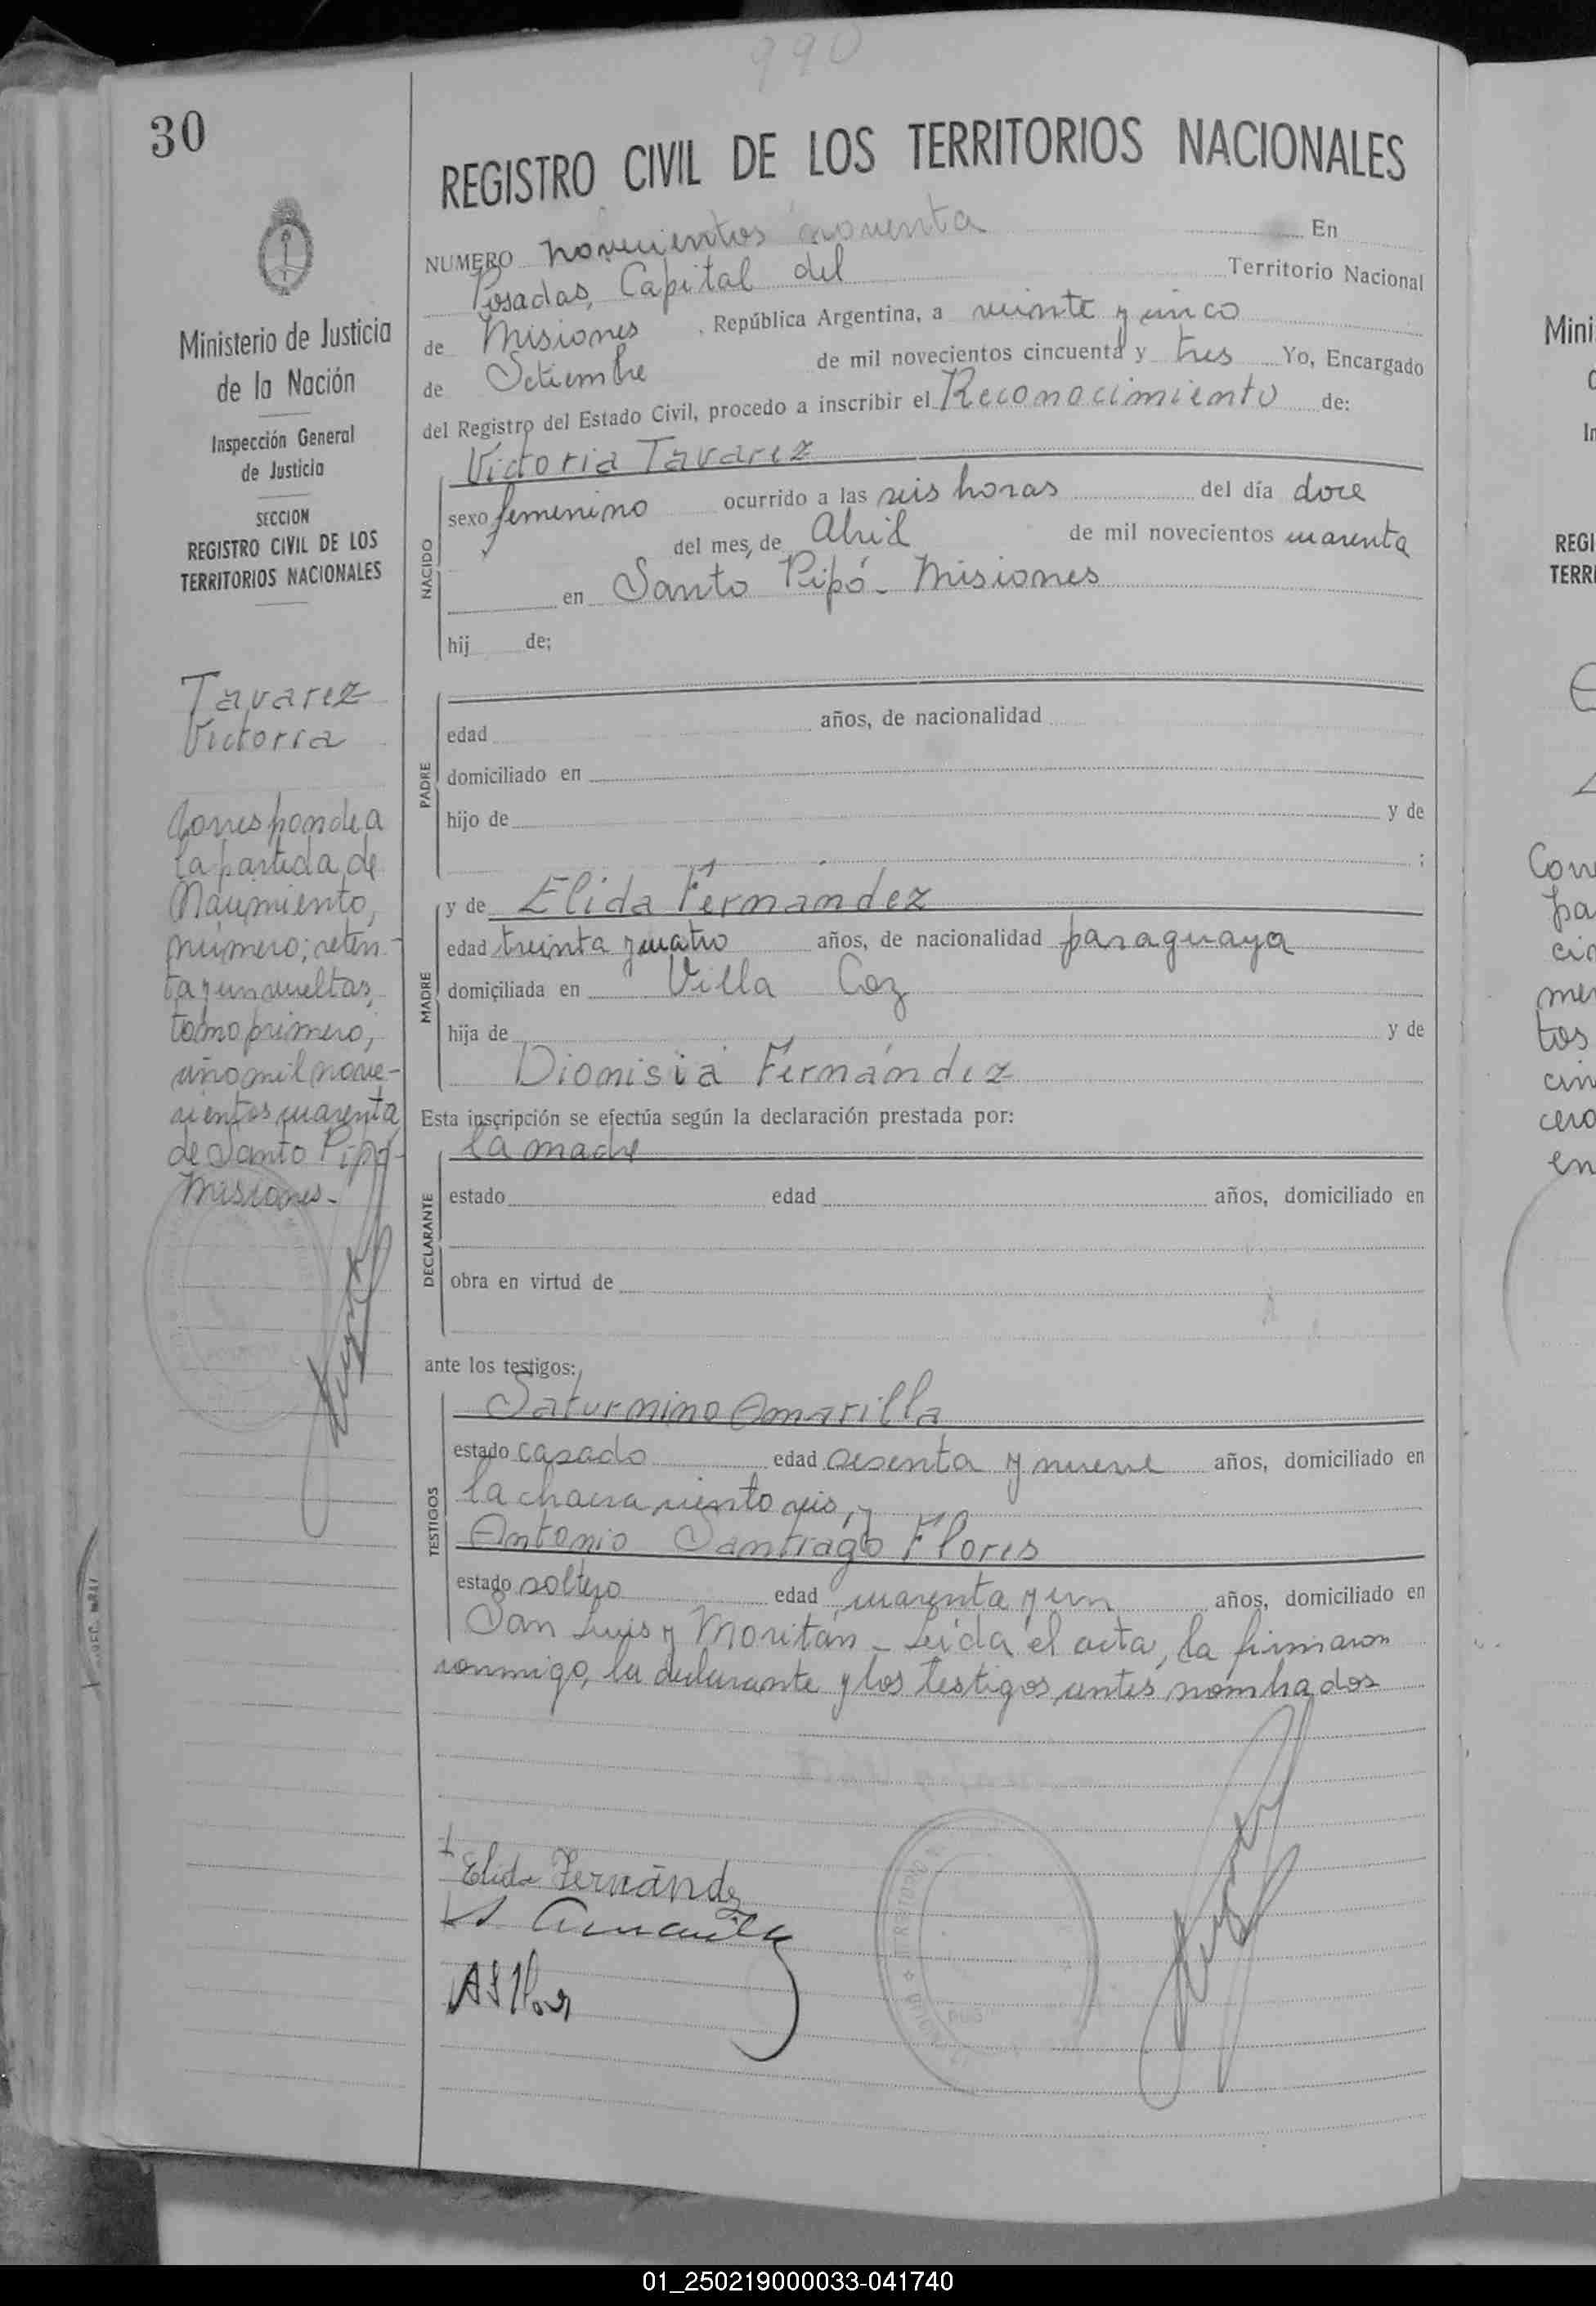 990
30
REGISTRO CIVIL DE LOS TERRITORIOS NACIONALES
NUMERO novecientos noventa En
Posadas, Capital del Territorio Nacional
de Misiones, República Argentina, a veinte y cinco
de Setiembre de mil novecientos cincuenta y tres Yo, Encargado
del Registro del Estado Civil, procedo a inscribir el Reconocimiento de:
Victoria Tavarez
NACIDO
sexo femenino ocurrido a las seis horas del día doce
del mes de Abril de mil novecientos cuarenta
en Santo Pipó - Misiones
hij de;
PADRE
edad años, de nacionalidad
domiciliado en
hijo de y de
;
MADRE
y de Elida Fernández
edad treinta y cuatro años, de nacionalidad paraguaya
domiciliada en Villa Coz
hija de y de
Dionisia Fernández
Esta inscripción se efectúa según la declaración prestada por:
la madre
DECLARANTE
estado edad años, domiciliado en
obra en virtud de
ante los testigos:
TESTIGOS
Saturnino Amarilla
estado casado edad sesenta y nueve años, domiciliado en
la chacra ciento seis, y
Antonio Santiago Flores
estado soltero edad cuarenta y un años, domiciliado en
San Luis y Moritán - Leída el acta, la firmaron
conmigo, la declarante y los testigos antes nombrados
Elida Fernández
S Amarilla
A S Flores
Ministerio de Justicia
de la Nación
Inspección General
de Justicia
SECCION
REGISTRO CIVIL DE LOS
TERRITORIOS NACIONALES
Tavarez
Victoria
Corresponde a
la partida de
Nacimiento,
número; seten-
ta y un vueltas,
tomo primero,
año mil nove-
cientos cuarenta
de Santo Pipó-
Misiones.-
Mini
REGI
TERRI
Corr
pa
cin
tos
cin
cero
en
01_250219000033-041740